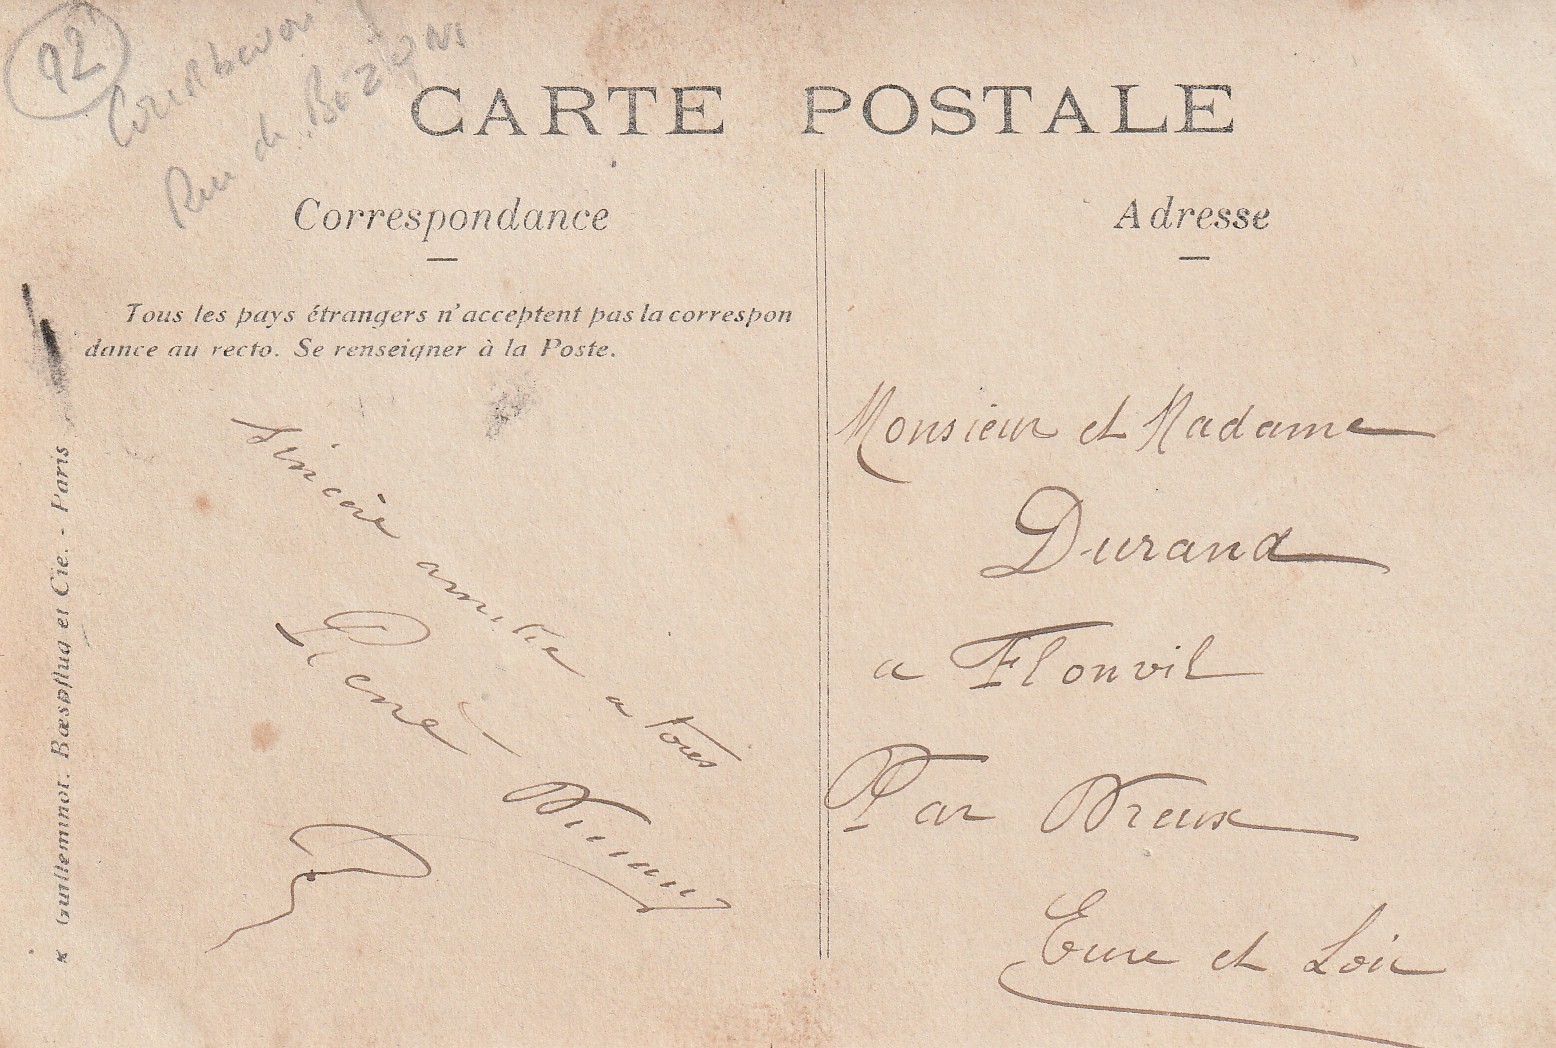 92
Courbevoie
Rue de Bezons
CARTE POSTALE
Correspondance
Tous les pays étrangers n'acceptent pas la correspon
dance au recto. Se renseigner à la Poste.
K Guilleminot, Bœspflug et Cie. - Paris
Sincère amitie a tous
René
Adresse
Monsieur et Madame
Durand
a Flonvil
Par Dreux
Eure et Loir